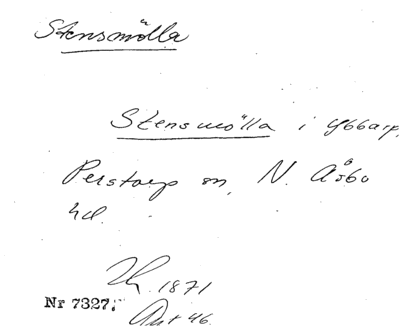 Stensmölla
Stensmölla i Ybbarp,
Perstorp sn, N. Åsbo
hd.
1871
Nr 7327.
Ant 46.